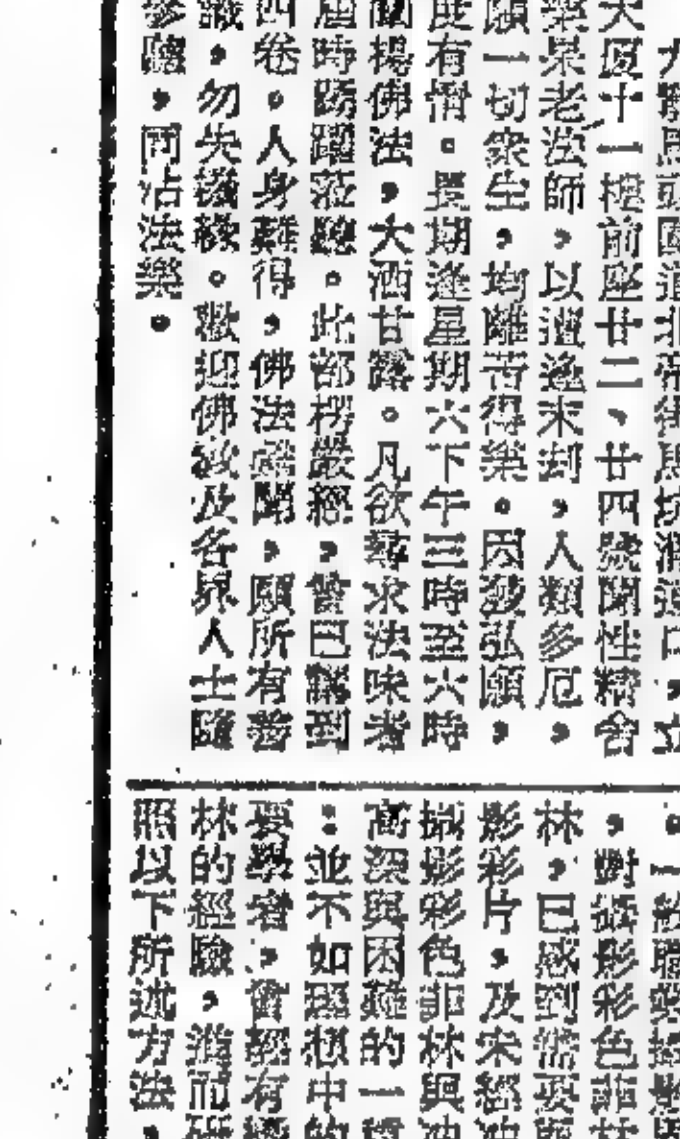 大廈十一樓前座廿二、廿四號聞性精舍
樂果老法師，以遭逢末刦，人類多厄，
願一切衆生，均離苦得樂。因發弘願，
度有情。長期逢星期六下午三時至六時
闡揚佛法，大洒甘露。凡欲尋求法味者
屆時踴躍蒞聽。此部楞嚴經，曾已講到
四卷。人身難得，佛法難聞，願所有善
識，勿失機緣。歡迎佛教及各界人士隨
參聽，同沾法樂。
，對攝影彩色菲林
林，已感到需要
影彩片，及宋經冲
攝影彩色菲林與冲
高深與困難的一
：並不如理想中的
要學者，曾經有
林的經驗，進而研
照以下所述方法，